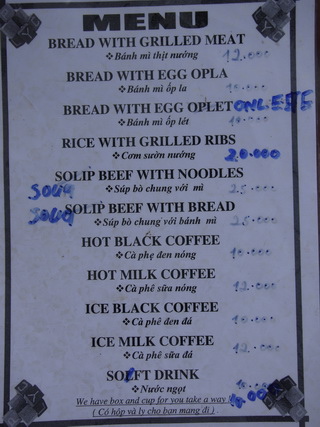 MENU
BREAD WITH GRILLED MEAT
❖Bánh mì thịt nướng 12.000
BREAD WITH EGG OPLA
❖Bánh mì ốp la 10.000
BREAD WITH EGG OPLET
❖Bánh mì ốp lét 10.000
RICE WITH GRILLED RIBS
❖Cơm sườn nướng 20.000
SOUP BEEF WITH NOODLES
❖Súp bò chung với mì 25.000
SOUP BEEF WITH BREAD
❖Súp bò chung với bánh mì 25.000
HOT BLACK COFFEE
❖Cà phẹ đen nóng 10.000
HOT MILK COFFEE
❖Cà phê sữa nóng 12.000
ICE BLACK COFFEE
❖Cà phê đen đá 10.000
ICE MILK COFFEE
❖Cà phê sữa đá 12.000
SOFT DRINK
❖Nước ngọt
We have box and cup for you take a way
( Có hộp và ly cho bạn mang đi )